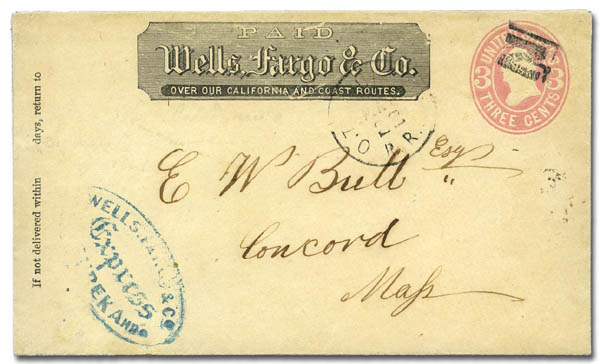 PAID
Wells, Fargo & Co.
OVER OUR CALIFORNIA AND COAST ROUTES.
UNITED
3 3
THREE CENTS
If not delivered within days, return to
E W Bull Esqr
Concord
Mass
WELLS, FARGO & CO
Express
YREKA